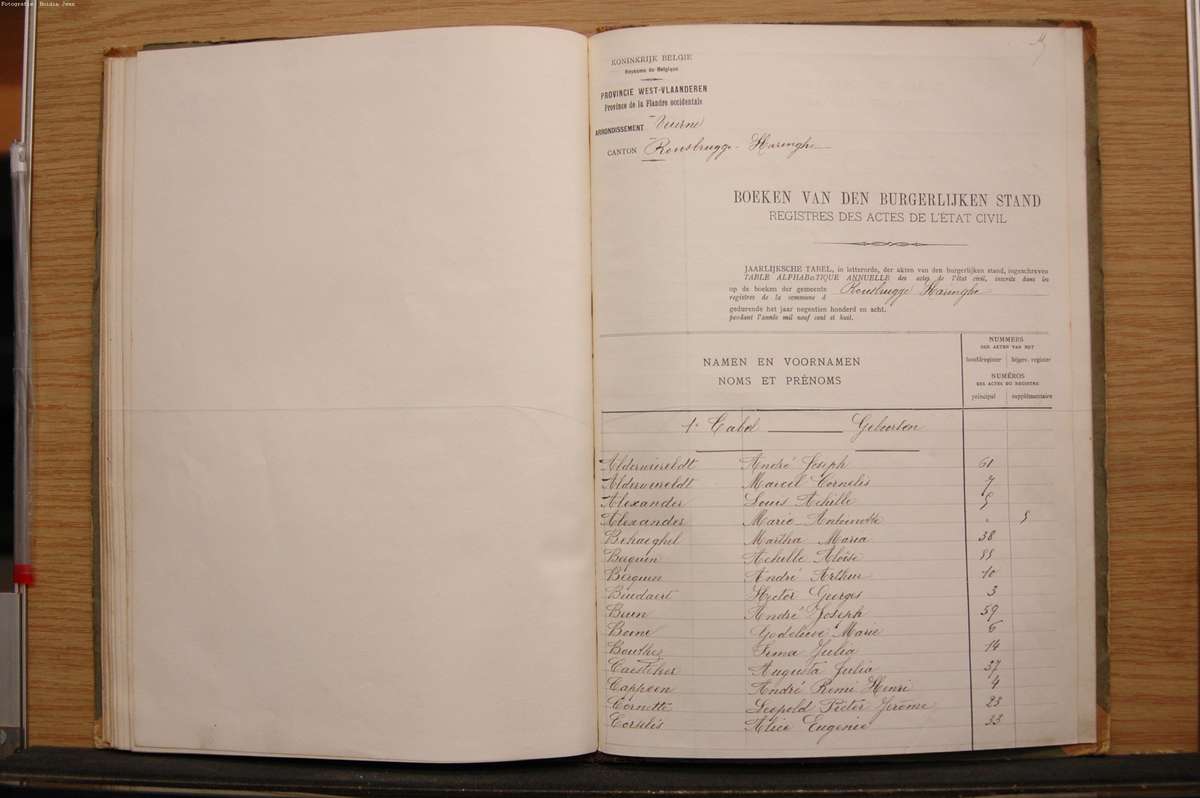 Fotografie: Boidin Jean
KONINKRIJK BELGIE
Royaume de Belgique
PROVINCIE WEST-VLAANDEREN
Province de la Flandre occidentale
ARRONDISSEMENT Veurne
CANTON Rousbrugge-Haringhe
BOEKEN VAN DEN BURGERLIJKEN STAND
REGISTRES DES ACTES DE L'ÉTAT CIVIL
JAARLIJKSCHE TABEL, in letterorde, der akten van den burgerlijken stand, ingeschreven
TABLE ALPHABÉTIQUE ANNUELLE des actes de l'état civil, inscrits dans les
op de boeken der gemeente Rousbrugge Haringhe
registres de la commune d
gedurende het jaar negentien honderd en acht.
pendant l'année mil neuf cent et huit.
NAMEN EN VOORNAMEN
NOMS ET PRÉNOMS
NUMMERS
DER AKTEN VAN HET
hoofdregister bijgev. register
NUMÉROS
DES ACTES DU REGISTRE
principal supplémentaire
1e Tabel Geboorten
Alderweireldt André Joseph 61
Alderweireldt Marcel Cornelis 7
Alexander Louis Achille
Alexander Marie Antoinette
Behaeghel Martha Maria 38
Berquin Achille Aloïse
Berquin André Arthur 10
Beudaert Hector Georges 3
Boen André Joseph 59
Bonne Godelieve Marie 6
Bouthez Irma Julia 14
Caesteker Augusta Julia 37
Cappoen André Remi Henri 4
Cornette Leopold Pieter Jerome 23
Corselis Alice Eugenie 33